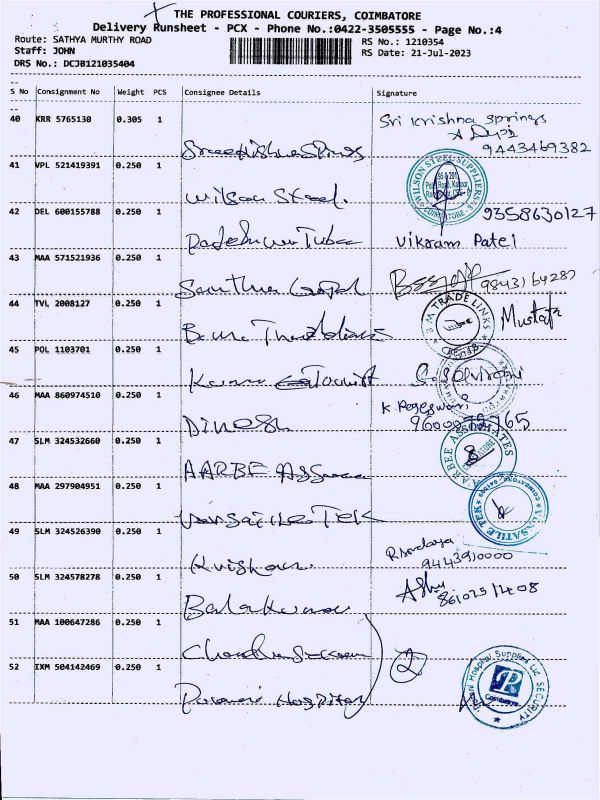 THE PROFESSIONAL COURIERS, COIMBATORE
Delivery Runsheet - PCX - Phone No.:0422-3505555 - Page No.:4
Route: SATHYA MURTHY ROAD
RS No.: 1210354
Staff: JOHN
RS Date: 21-Jul-2023
DRS No.: DCJB121035404
S No Consignment No Weight PCS Consignee Details Signature
40 KRR 5765130 0.305 1
Sri Krishna Springs
9443469382
41 VPL 521419391 0.250 1
Wilson Steel.
WILSON STEEL SUPPLIERS
COIMBATORE
42 DEL 600155788 0.250 1
9358630127
Vikram Patel
43 MAA 571521936 0.250 1
Santhna Gopal
44 TVL 2008127 0.250 1
S M TRADE LINKS
45 POL 1103701 0.250 1
46 MAA 860974510 0.250 1
Dinesh
K. Rogeswari
47 SLM 324532660 0.250 1
AARBE
ARBEE ASSOCIATES
48 MAA 297904951 0.250 1
Versatile Tek
VERSATILE TEK
49 SLM 324526390 0.250 1
Krishna
9443910000
50 SLM 324578278 0.250 1
Balakumar
51 MAA 100647286 0.250 1
2
52 IXM 504142469 0.250 1
Hospital
Hospital Supplies
SECURITY
Coimbatore